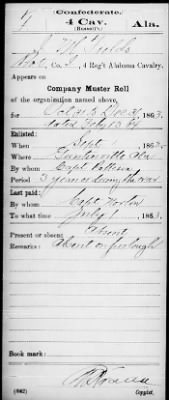 Confederate.
4 Cav.
Ala.
(Russell's)
J. W. Fields
Co. , 4 Reg't Alabama Cavalry.
Appears on
Company Muster Roll
of the organization named above,
for Oct 31 to Dec 31, 1863.
dated Feby 13, 64
Enlisted:
When Sept
Where Guntersville Ala
By whom Capt
Period 3 years or during the war
Last paid:
By whom Capt
To what time July 1, 1863.
Present or absent Absent
Remarks: Absent on furlough
Book mark:
(642)
Copyist.